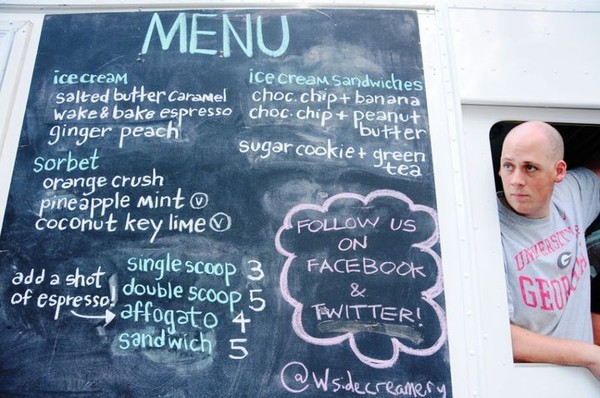 MENU
ice cream
salted butter caramel
wake & bake espresso
ginger peach
sorbet
orange crush
pineapple mint V
coconut key lime V
ice cream sandwiches
choc. chip + banana
choc. chip + peanut
butter
sugar cookie + green
tea
add a shot
of espresso!
single scoop 3
double scoop 5
affogato 4
sandwich 5
FOLLOW US
ON
FACEBOOK
&
TWITTER!
@Wsidecreamery
UNIVERSITY
G
GEORGIA